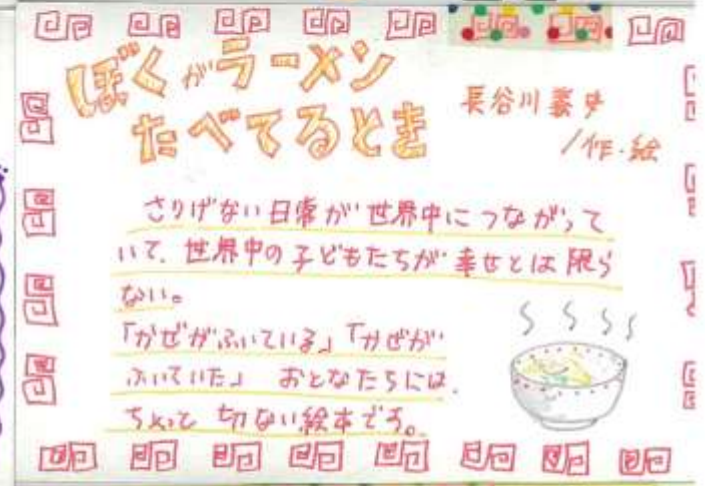 ぼくがラーメン
たべてるとき
長谷川義史
/作・絵
さりげない日常が世界中につながって
いて、世界中の子どもたちが幸せとは限ら
ない。
「かぜがふいている」「かぜが
ふいていた」 おとなたちには、
ちょっと切ない絵本です。